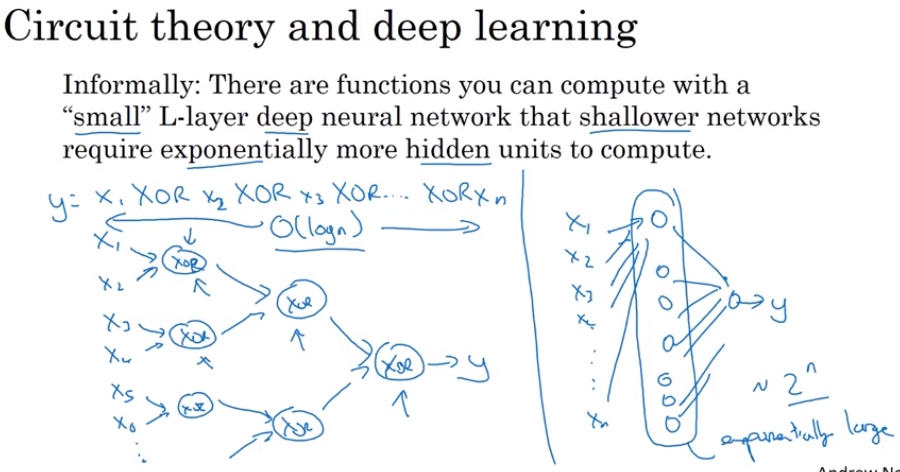 Circuit theory and deep learning
Informally: There are functions you can compute with a
“small” L-layer deep neural network that shallower networks
require exponentially more hidden units to compute.
y= x₁ XOR x₂ XOR x₃ XOR.... XOR xₙ
O(logn)
x₁
XOR
x₂
XOR
x₃
XOR
x₄
XOR
y
x₅
XOR
x₆
XOR
x₁
x₂
x₃
x₄
xₙ
y
~ 2ⁿ
exponentially large
Andrew